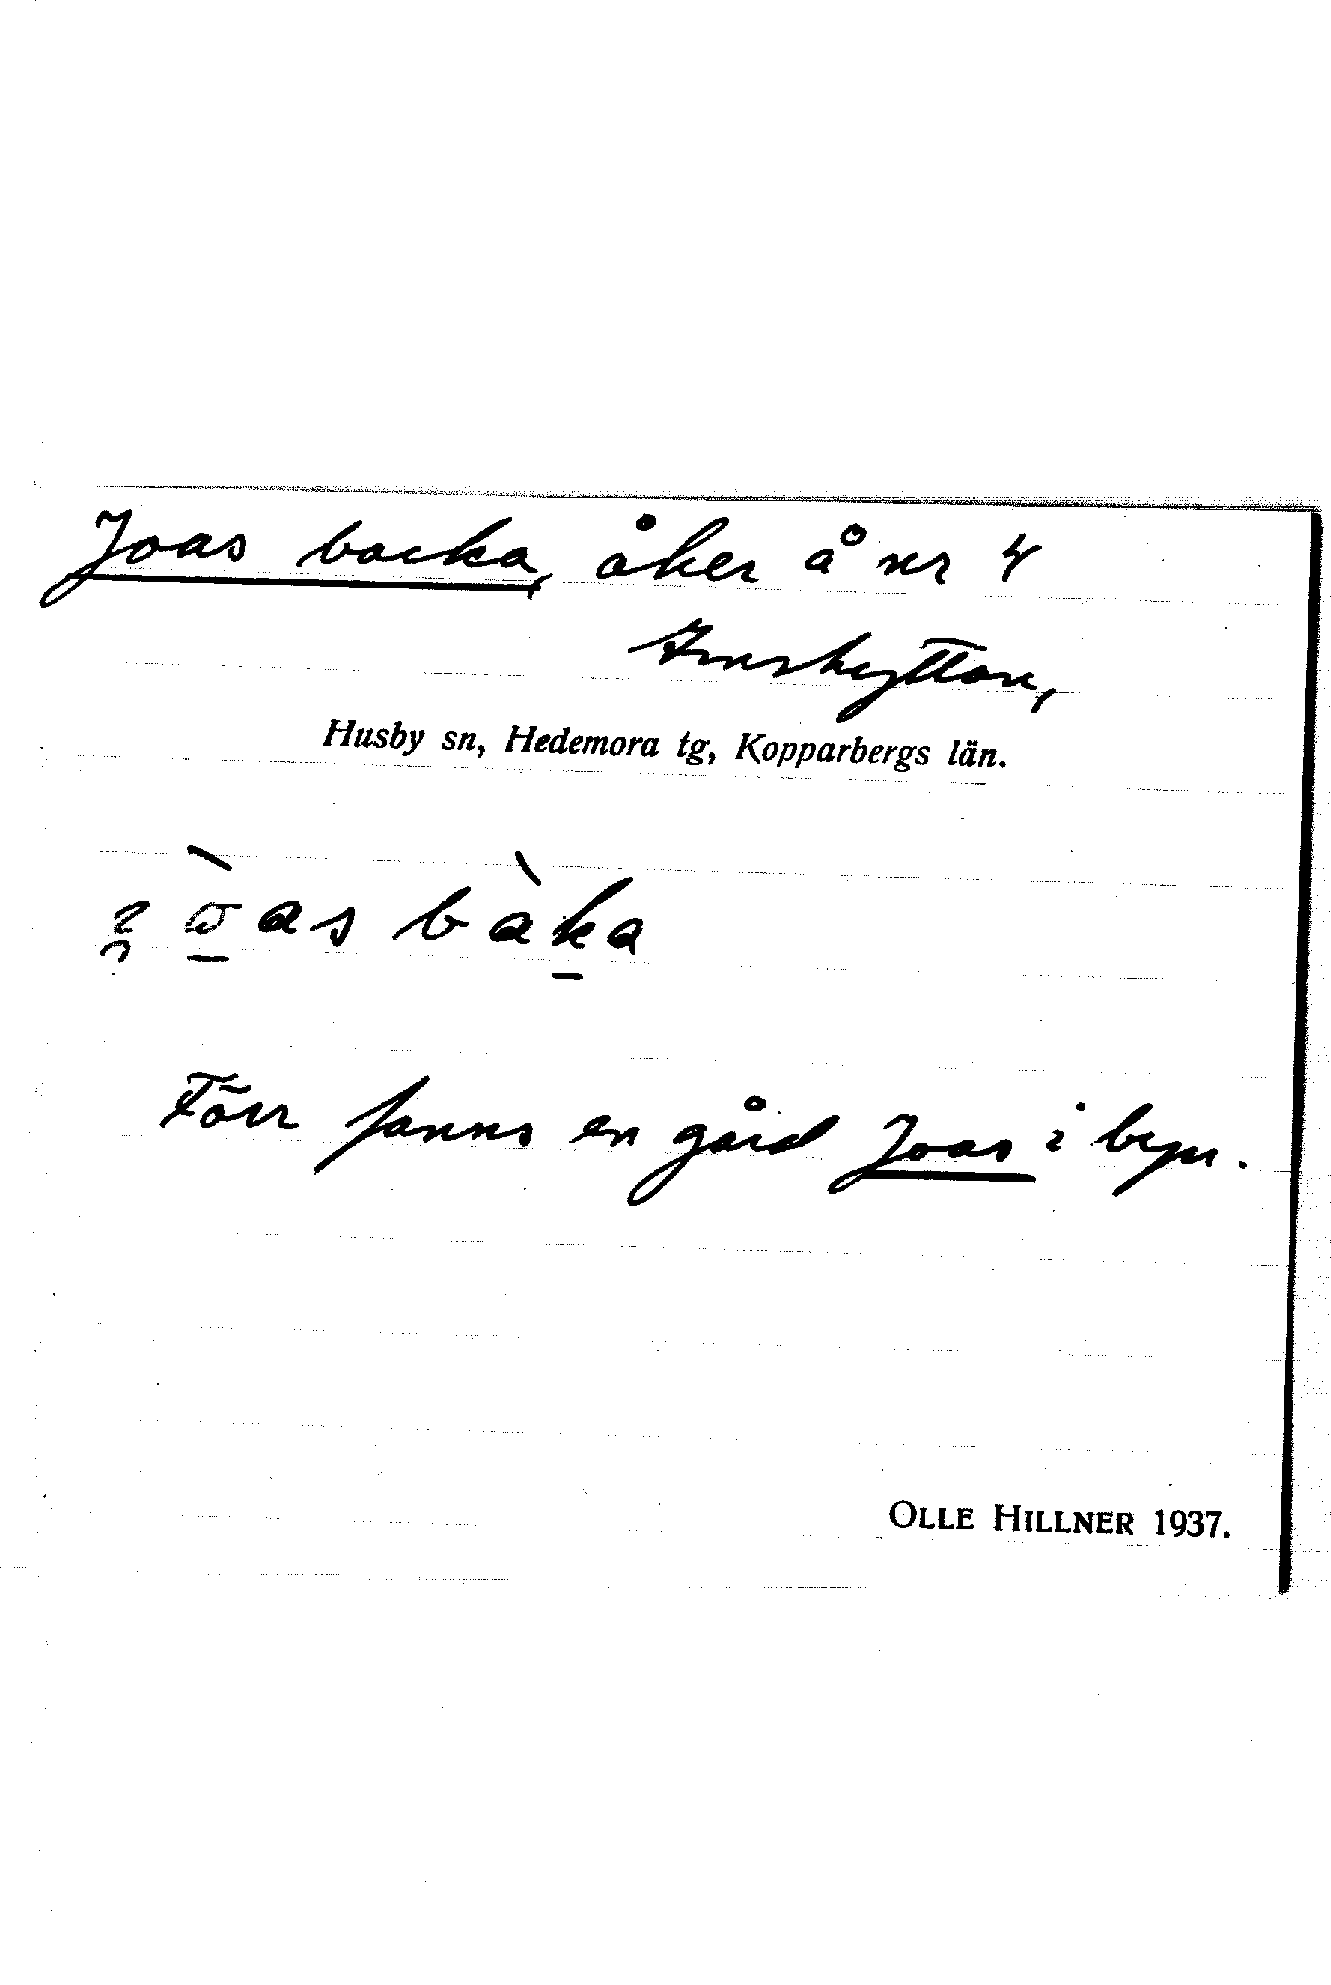 Joas backa, åker å nr 4
Imshyttan,
Husby sn, Hedemora tg, Kopparbergs län.
as bàka
Förr fanns en gård Joas i byn.
OLLE HILLNER 1937.